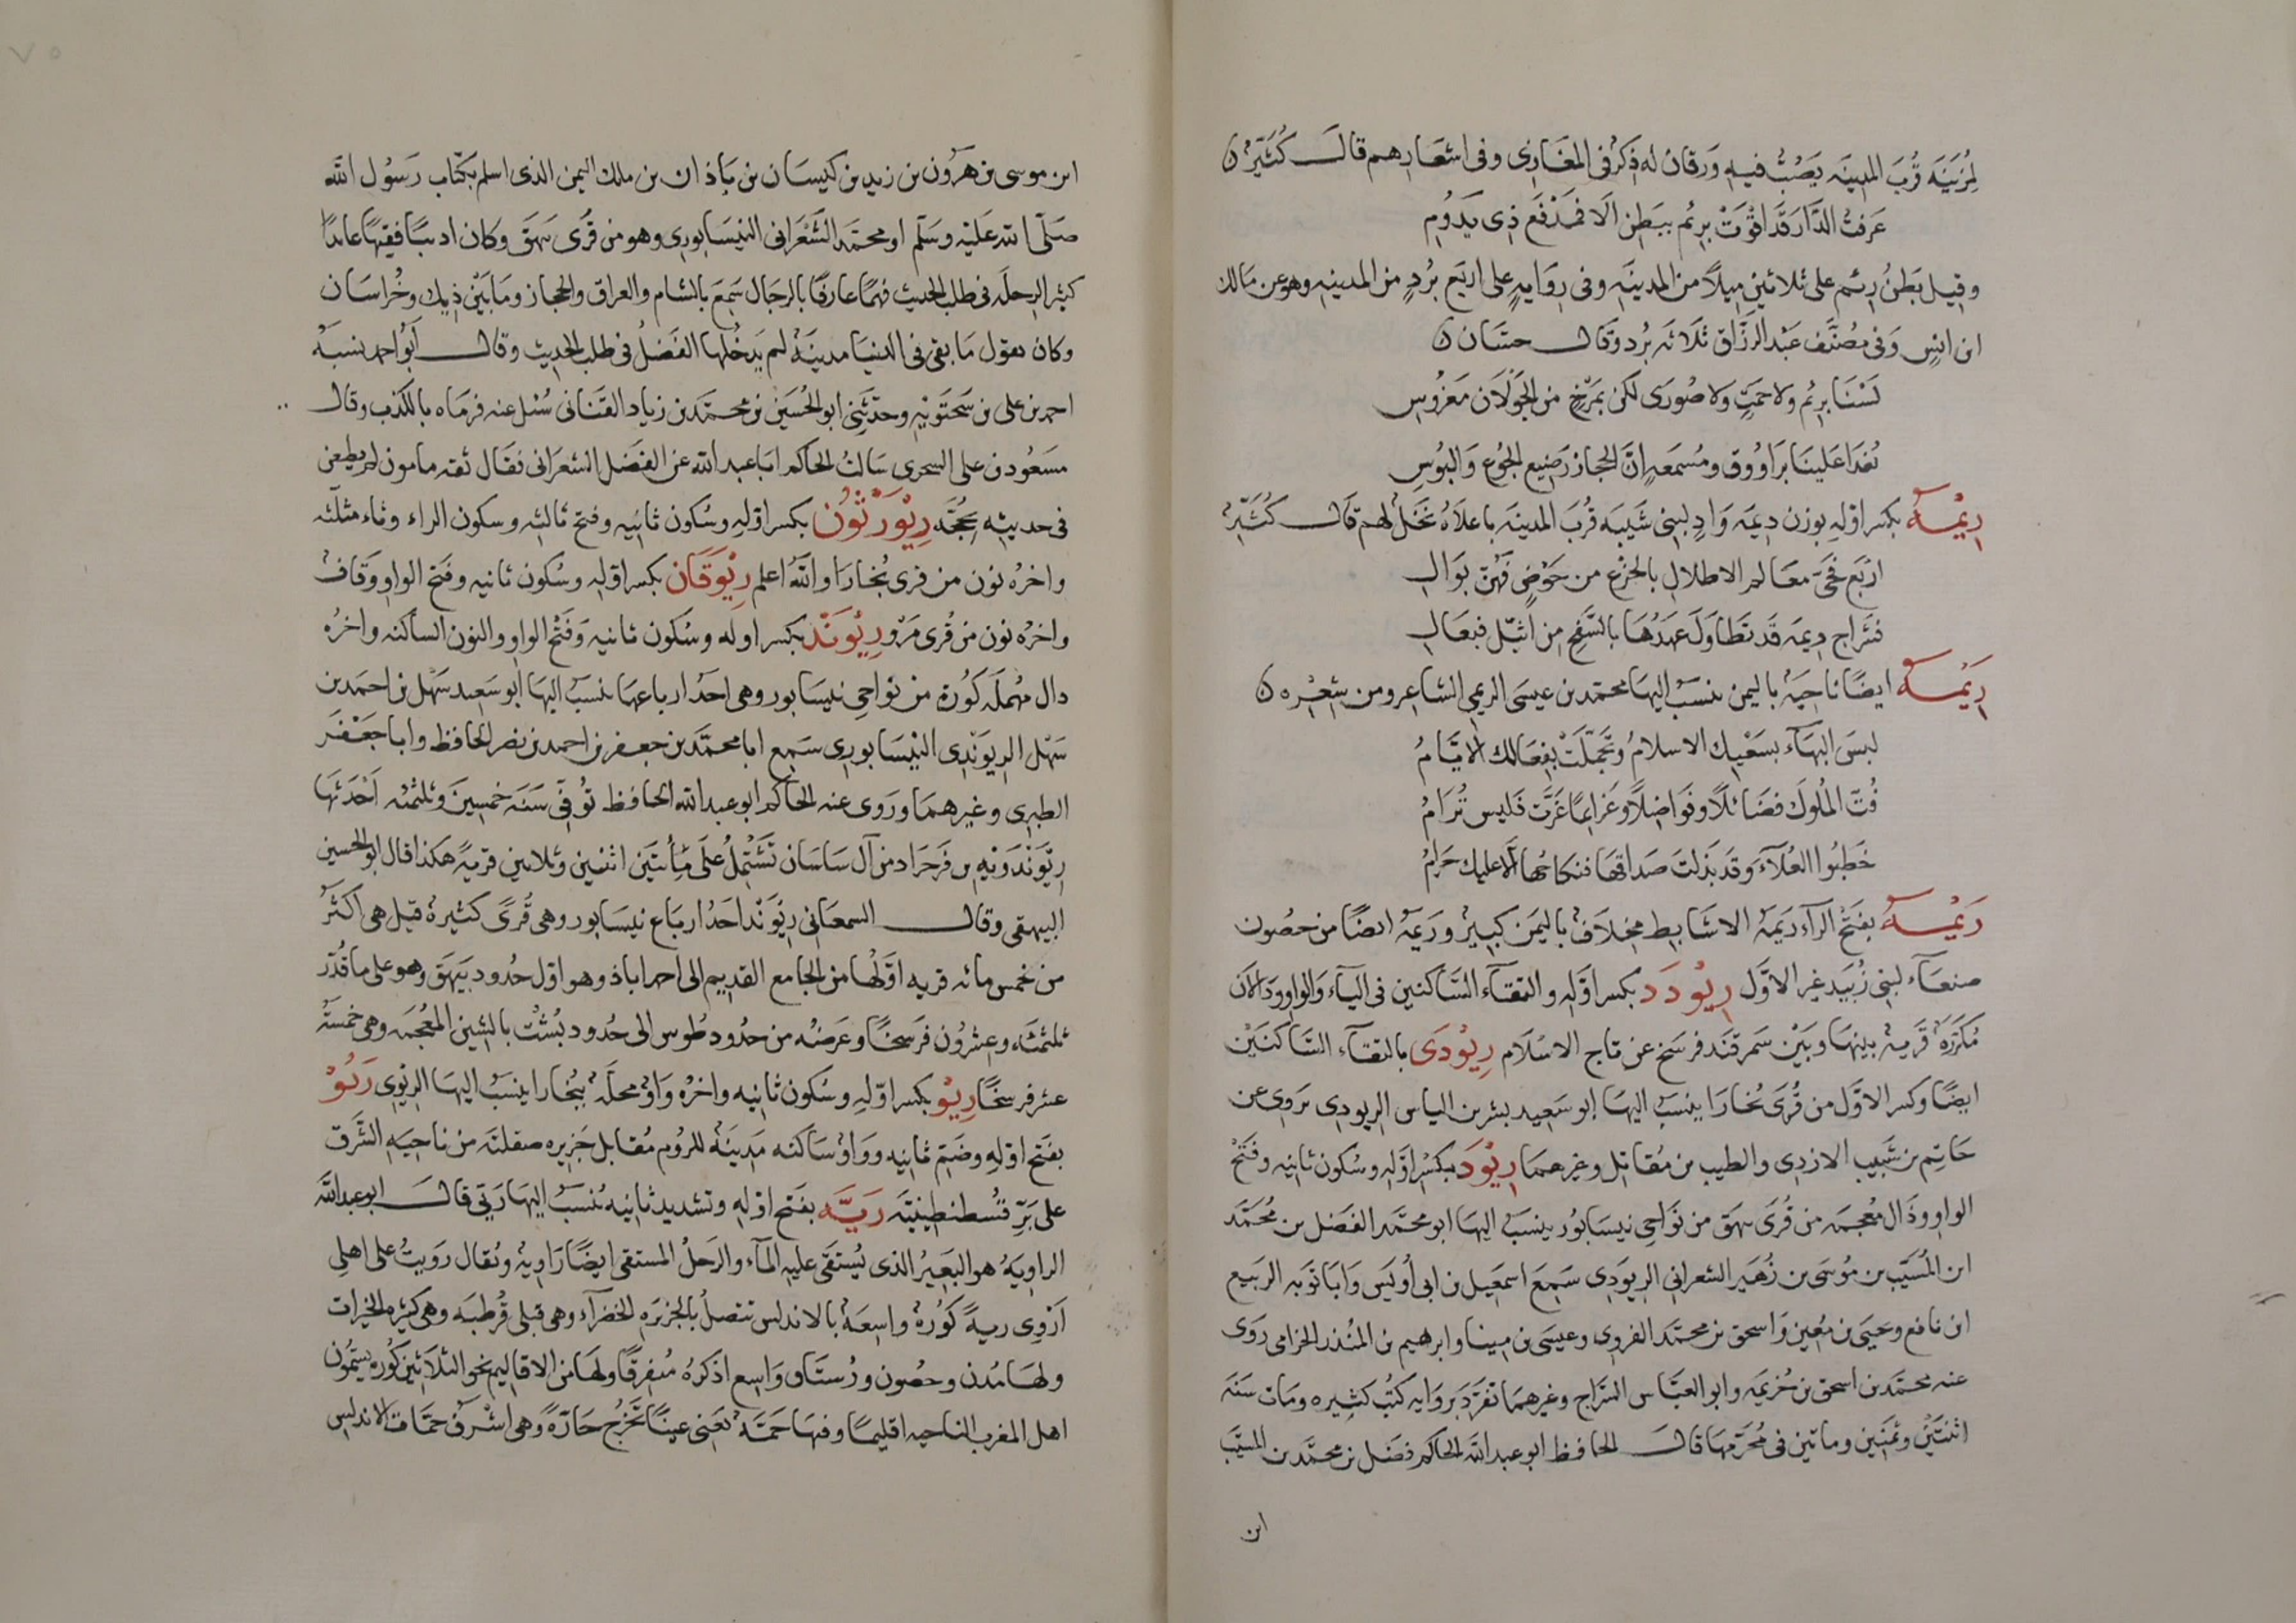 لمُزَينَة قُربَ المدينَه يَصُبُّ فيه وَرقان له ذِكرٌ فى المغَازى وفى اشعَارهم قال كُثَيّرٌ ن
عَرفتُ الدَّارَ قَد اقْوَتْ برِئم ببَطنِ الاَ فمَدْفَع ذى يَدُوم
وقيل بَطنُ رِئم على ثلاثينِ ميلًا من المدينَه وفى رِوَايةٍ على اربَع بُردٍ من المدينه وهو عن مَالك
ابن انسٍ وَفى مصَنَّف عَبْد الرزَّاق ثلاثه بُرد وقال حسَّان ن
لَسْنَا برِئم ولا حَمتٍ ولا صُورَى لكن بمَرْج من الجَولَان مَغرُوسِ
نُغدَا عَلينَا برَاوُوق ومُسمعَه انَّ الحجاز رَضيع الجُوع وَالبُوسِ
رِيْمَة بكسر اوّله بوزن دِيمَه وَادٍ لبنى شَيبَه قُربَ المدينَه باعلاهُ نخلٌ لهم قال كُثَيّرٌ
اربَع فحَىّ معَالم الاطلالِ بالجزع من حَوْضٍ فهُنّ بَوَالِ
فشراج ريمَه قد تطَاولَ عهدُهَا بالسَّفح من اثيّل فبعَالِ
رِيْمَة ايضًا ناحيَةٌ باليمن ينسَبُ اليهَا محمّد بن عيسَى الريمى الشاعر ومن شِعْره ن
لبسَ البهَآء بسَعْيك الاسلامُ وتجَمّلَتْ بفعَالك الايَّامُ
فُتَّ المُلوكَ فضَائلًا وفوَاضلًا وعَزايمًا عَزَّت فليس تُرَامُ
خَطبُوا العُلآءَ وقد بَذلتَ صدَاقهَا فنكاحُهَا الا عليك حَرامُ
رَيْمَة بفَتح الرآء رَيمَة الاشَابيط مِخلَافٌ باليمَن كبيرٌ ورَيمَةُ ايضًا من حصُون
صنعَآء لبنى زُبَيد غير الاوَّل رِيْوْدَد بكسر اوّله والتقآء السَّاكنين فى اليآء وَالواو ودَالان
مُكررَة قَريَةٌ بينهَا وبَيْن سَمرقَند فرسَخ عن تاج الاسْلام رِيْوْدَى بالتقآء السَّاكنَيْن
ايضًا وكسر الاوَّل من قُرى بُخارَا ينسَبُ اليهَا ابو سَعيد بشر بن الياس الريودى يَروى عن
حَاتِم بن شَبيب الازدى والطيب من مُقاتل وغيرهمَا رِيْوَد بكسْر اوّله وسُكون ثانيه وفتْح
الواو وذَال معجمَه من قُرى بيهَق من نوَاحى نيسَابُور ينسَبُ اليهَا ابو محمَّد الفَضل بن مُحَمّد
ابن المُسَيَّب بن مُوسَى بن زُهَير الشعرانى الريوَدى سَمِعَ اسمعيل بن ابى أُوَيس وَابَا تَوبه الربيع
ابن نافع وَيحيَى بن مُعين وَاسحق بن محمَّد الفروى وعيسَى بن مينا وابرهيم بن المُنذر الحزامى رَوَى
عنه محمّد بن اسحق بن خُزيمَه وابو العبَّاس السَّراج وغيرهمَا تفرَّد برِوَايه كتُبٌ كثيره ومَات سَنَة
اثنتَيْن وثمنين وماتين فى مُحَرَّمهَا قال الحافظ ابو عبد الله الحاكم فضل بن محمَّد بن المسيّب
ابن
ابن موسى بن هرُون بن زيد بن كيسَان بن بَاذان بن ملك اليمن الذى اسلم بكتاب رسُول الله
صلّى الله عليْه وسَلّم ابو محمَّد الشَّعْرانى النيسَابورى وهو من قُرى بيهَق وكان اديبًا فقيهًا عابدًا
كثير الرحلَه فى طلب الحديث فهمًا عارفًا بالرجَال سَمعَ بالشام والعراق والحجاز ومَا بَيْن ذلك وخُراسَان
وكان يقول مَا بقى فى الدنيَا مدينَةٌ لم يَدخُلها الفَضلُ فى طلب الحديث وقال ابُو احمد نسبَه
احمد بن على بن سَحتَويْه وحدّثنى ابو الحُسَين بن محمَّد بن زياد القبَانى سُئل عنه فرمَاه بالكذب وقال
مسَعُود بن على السجزى سَالتُ الحاكم ابَا عبد الله عن الفَضل الشعرَانى فقَال ثقه مامون لم يطعن
فى حديثه بحُجّه رِيْوَرْثُون بكسر اوّله وسُكون ثانيه وفتح ثالثه وسكون الراء وثاء مثلثه
واخرُه نون من قرى بُخارَا والله اعلم رِيْوَقَان بكسر اوّله وسُكون ثانيه وفتح الواو وَقَاف
واخرُه نون من قُرى مَرْو رِيْوَنْد بكسر اوله وسُكون ثانيه وَفَتْح الواو والنون الساكنه واخرُه
دال مُهمَله كُورَة من نواحى نيسَابور وهى احدُ ارباعهَا ينسَبُ اليهَا ابو سَعيد سَهْل بن احمَد بن
سَهْل الريوَنْدى النيسَابورى سَمِع ابا محمّد بن جعفر بن احمد بن نصر الحافظ وابا جَعْفر
الطبرى وغيرهمَا ورَوى عنه الحاكم ابو عبد الله الحافظ تُوفّى سَنَه خمسين وثلثمئه احْدَثهَا
رِيْوَنْدَويْه بن فَرخزاد من آل سَاسَان تَشْتملُ على مِأتَين اثنين وثلاثين قريةً هكذا قال ابو الحسين
البيهقى وقال السمعَانى رِيْوَنْد احَدُ اربَاع نيسَابور وهى قُرىً كثيرةٌ قيل هى اكثَرُ
من خمس مائه قريه اوَّلهَا من الجامع القديم الى احمداباذ وهو اول حُدود بَيهَق وهو على ما قُدّر
ثلثمئَه وعشرُون فرسخًا وعَرضُه من حدُود طُوس الى حُدود بُشْت بالشين المعْجمَه وهى خمسَةَ
عشر فرسخًا رِيْو بكسر اوّله وسُكون ثانيه واخرُه وَاوٌ محلَه ببُخارا ينسَبُ اليهَا الريْوى رَيُو
بفَتح اوّله وضَم ثانيه ووَاوٌ سَاكنَه مَدينَةٌ للرُوم مُقابل جَزيره صقلنَه من ناحيَه الشَّرق
على بَرّ قُسطنطينيّه رَيَّه بفَتح اوّله وتشديد ثانيه يُنسَبُ اليهَا رَيّى قال ابو عبد الله
الراويَةُ هو البَعيرُ الذى يُستقَى عليه المآء والرَجلُ المستقى ايضًا رَاويةٌ ويُقال رَويتُ على اهلى
ارْوى ريةً كُورَةٌ واسِعَةٌ بالاندلس تتصلُ بالجَزيره الخضرآء وهى قبلى قُرطبَه وهى كثيره الخيرات
ولهَا مُدن وحصُون ورُستَاق وَاسِع اذكرهُ مُتفرّقًا ولهَا من الاقاليم نحو الثلاثين كُوره يسمّون
اهل المغرب الناحيه اقليمًا وفيهَا حَمَّةٌ يعنى عينًا تَخرُج حَارّةً وهى اشْرَف حَمّات الاندلس
٧٥